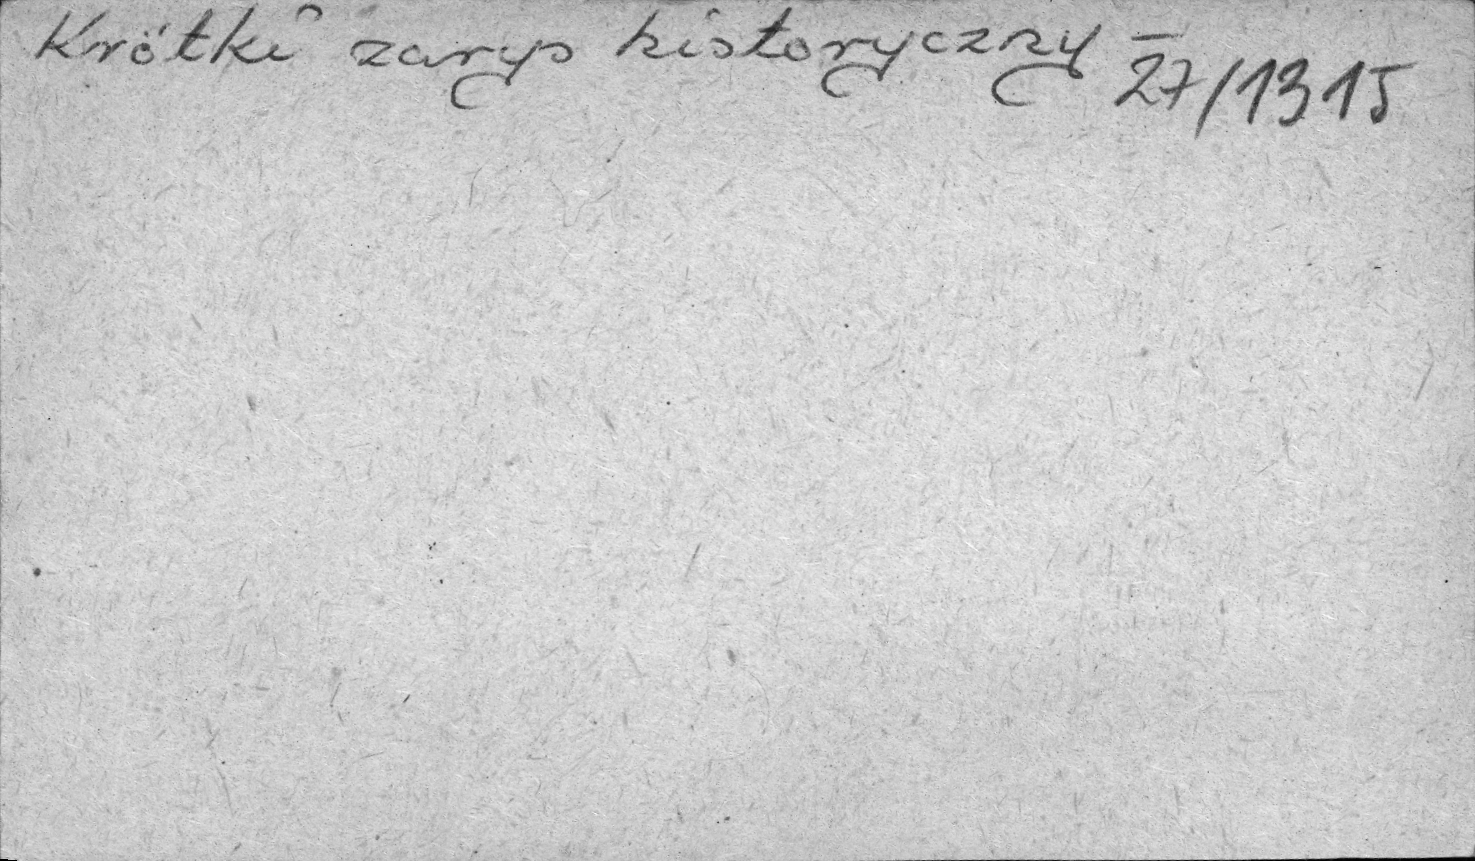 Krótki zarys historyczny –
27/1315